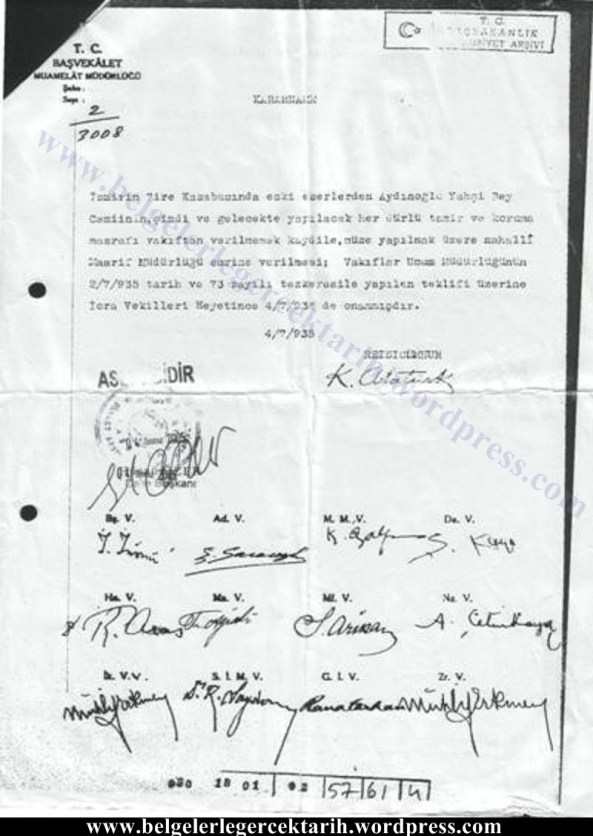 T. C.
BAŞBAKANLIK
CUMHURİYET ARŞİVİ
T. C.
BAŞVEKÂLET
MUAMELÂT MÜDÜRLÜĞÜ
Şube :
Sayı :
2
3008
KARARNAME
İzmirin Tire Kasabasında eski eserlerden Aydınoğlu Yahşi Bey
Camiinin,şimdi ve gelecekte yapılacak her dürlü tamir ve koruma
masrafı vakıftan verilmemek kaydile,müze yapılmak üzere mahallî
Maarif Müdürlüğü emrine verilmesi; Vakıflar Umum Müdürlüğünün
2/7/935 tarih ve 73 sayılı tezkeresile yapılan teklifi üzerine
İcra Vekilleri Heyetince 4/7/935 de onanmışdır.
4/7/935
REİSİCÜMHUR
K. Atatürk
ASLI GİDİR
Bş. V.
Ad. V.
M. M. V.
Da. V.
İ. İnönü
Ş. Saracoğlu
K. Özalp
Ş. Kaya
Ha. V.
Ma. V.
Mf. V.
Na. V.
R. Aras
S. Arıkan
A. Çetinkaya
İk. V. V.
S. İ. M. V.
G. İ. V.
Zr. V.
Muhlis Erkmen
Dr. R. Saydam
Rana Tarhan
Muhlis Erkmen
030 18 01 02 57 61 4
www.belgelerlegercektarih.wordpress.com
www.belgelerlegercektarih.wordpress.com